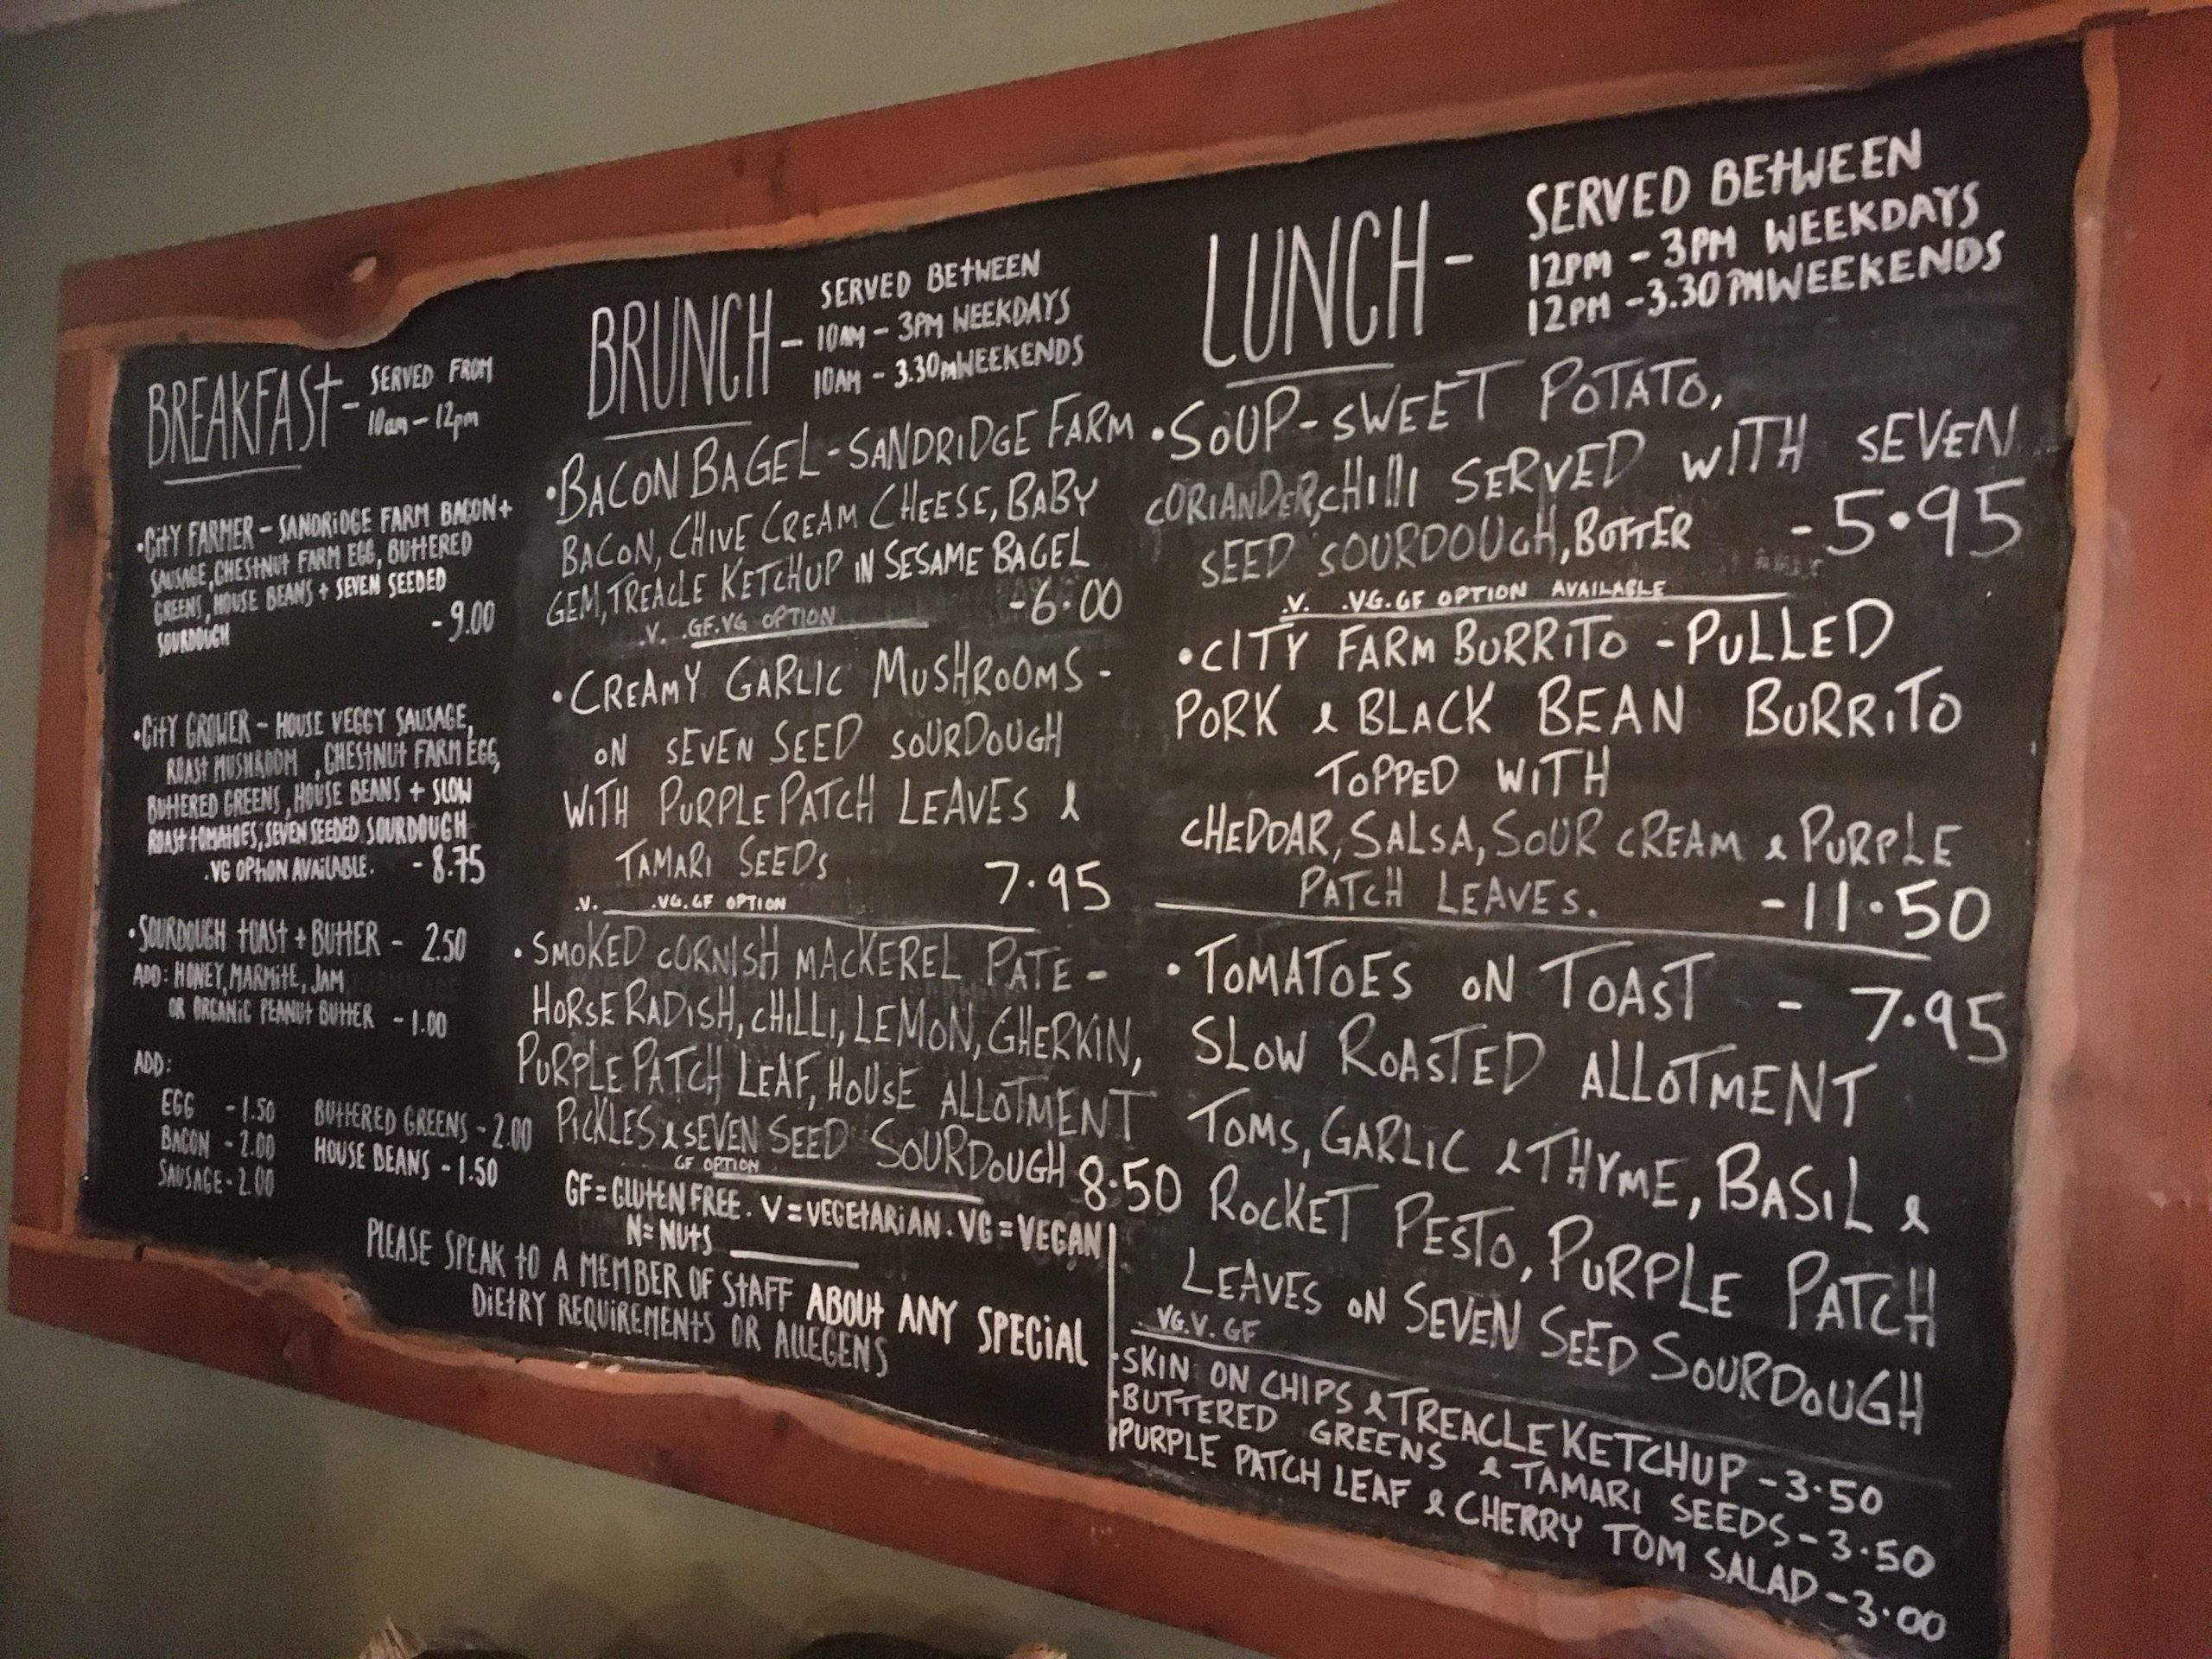 BREAKFAST - SERVED FROM
10am - 12pm
• CITY FARMER - SANDRIDGE FARM BACON +
SAUSAGE, CHESTNUT FARM EGG, BUTTERED
GREENS, HOUSE BEANS + SEVEN SEEDED
SOURDOUGH - 9.00
• CITY GROWER - HOUSE VEGGY SAUSAGE,
ROAST MUSHROOM , CHESTNUT FARM EGG,
BUTTERED GREENS, HOUSE BEANS + SLOW
ROAST TOMATOES, SEVEN SEEDED SOURDOUGH
.VG OPTION AVAILABLE. - 8.75
• SOURDOUGH TOAST + BUTTER - 2.50
ADD: HONEY, MARMITE, JAM
OR ORGANIC PEANUT BUTTER - 1.00
ADD:
EGG - 1.50 BUTTERED GREENS - 2.00
BACON - 2.00 HOUSE BEANS - 1.50
SAUSAGE - 2.00
BRUNCH - SERVED BETWEEN
10AM - 3PM WEEKDAYS
10AM - 3.30PM WEEKENDS
• BACON BAGEL - SANDRIDGE FARM
BACON, CHIVE CREAM CHEESE, BABY
GEM, TREACLE KETCHUP IN SESAME BAGEL
.V. .GF.VG OPTION - 6.00
• CREAMY GARLIC MUSHROOMS -
ON SEVEN SEED SOURDOUGH
WITH PURPLE PATCH LEAVES &
TAMARI SEEDS 7.95
.V. .VG.GF OPTION
• SMOKED CORNISH MACKEREL PATE -
HORSE RADISH, CHILLI, LEMON, GHERKIN,
PURPLE PATCH LEAF, HOUSE ALLOTMENT
PICKLES & SEVEN SEED SOURDOUGH 8.50
GF OPTION
GF = GLUTEN FREE. V = VEGETARIAN. VG = VEGAN
N = NUTS
PLEASE SPEAK TO A MEMBER OF STAFF ABOUT ANY SPECIAL
DIETRY REQUIREMENTS OR ALLEGENS
LUNCH - SERVED BETWEEN
12PM - 3PM WEEKDAYS
12PM - 3.30PM WEEKENDS
• SOUP - SWEET POTATO,
CORIANDER, CHILLI SERVED WITH SEVEN
SEED SOURDOUGH, BUTTER - 5.95
.V. .VG.GF OPTION AVAILABLE
• CITY FARM BURRITO - PULLED
PORK & BLACK BEAN BURRITO
TOPPED WITH
CHEDDAR, SALSA, SOUR CREAM & PURPLE
PATCH LEAVES. - 11.50
• TOMATOES ON TOAST - 7.95
SLOW ROASTED ALLOTMENT
TOMS, GARLIC & THYME, BASIL &
ROCKET PESTO, PURPLE PATCH
LEAVES ON SEVEN SEED SOURDOUGH
. VG.V. GF
• SKIN ON CHIPS & TREACLE KETCHUP - 3.50
• BUTTERED GREENS & TAMARI SEEDS - 3.50
• PURPLE PATCH LEAF & CHERRY TOM SALAD - 3.00